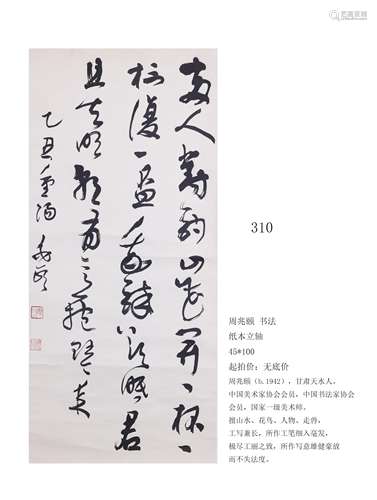 两人對酌山花開一杯一
杯復一盃我醉欲眠君
且去明朝有意抱琴来
乙丑重阳
兆颐
310
周兆颐 书法
纸本立轴
45*100
起拍价：无底价
周兆颐（b.1942），甘肃天水人，
中国美术家协会会员，中国书法家协会
会员，国家一级美术师。
擅山水、花鸟、人物、走兽，
工写兼长，所作工笔细入毫发，
极尽工丽之致，所作写意雄健豪放
而不失法度。